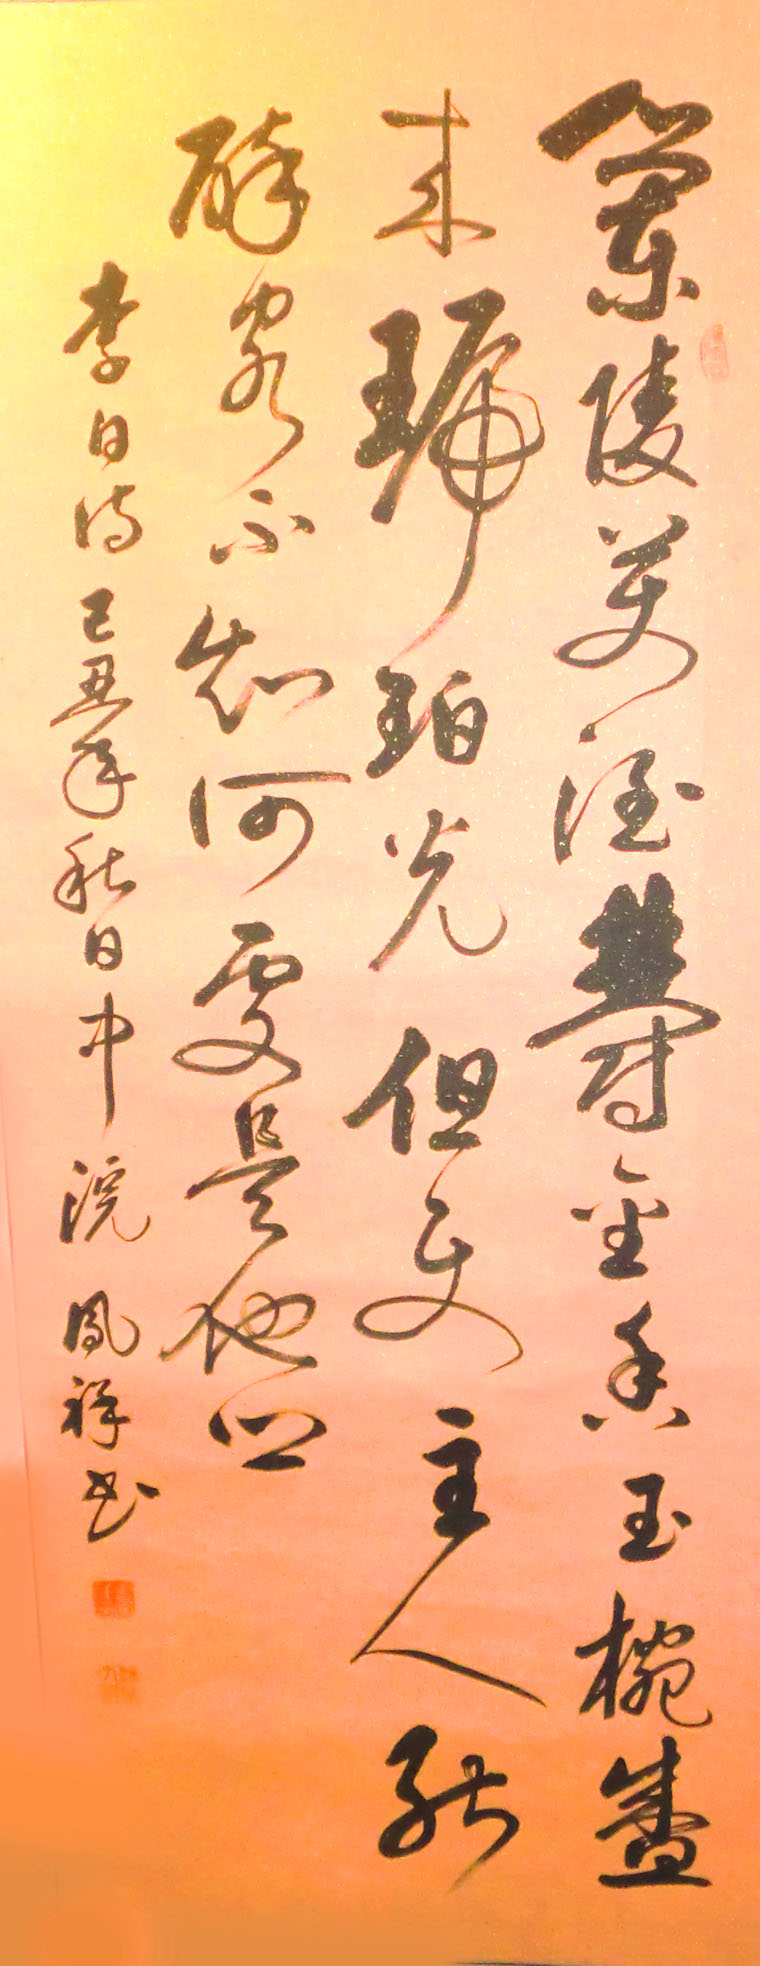 蘭陵美酒鬱金香玉椀盛
来琥珀光但使主人能
醉客不知何處是他鄉
李白詩己丑年秋日中浣鳳祥書